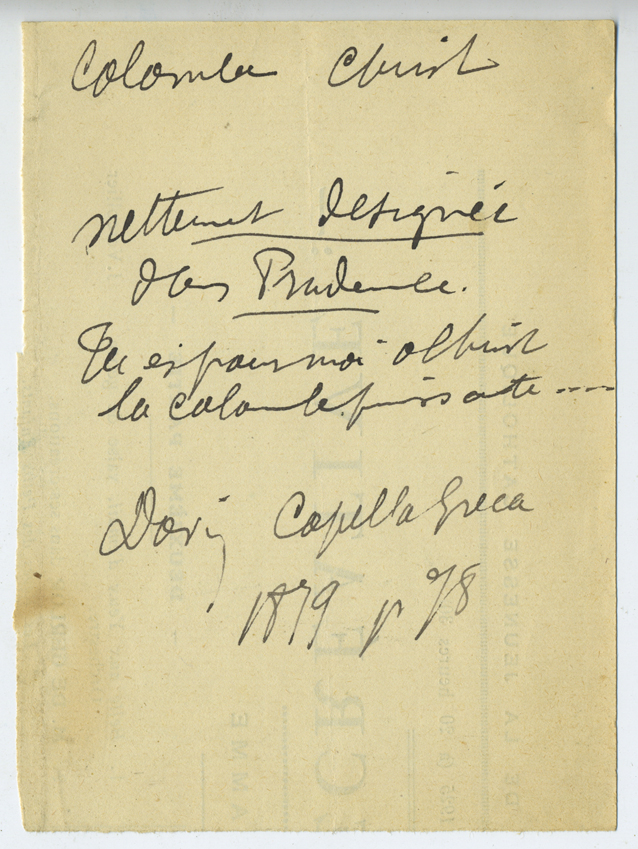 Colombe Christ
nettement designée
dans Prudence.
Tu es pour moi o Christ
la colombe puissante ----
Davin Capella Greca
1879 p 78